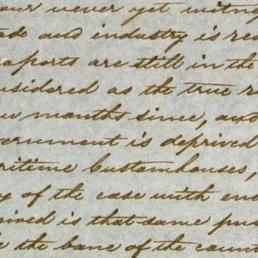 our never yet witn
ade and industry is rea
aports are still in the
nsidered as the true r
w months since, and
vernment is deprived
ritime Customhouses,
y of the case with en
ived is that same pu
e the bane of the coun